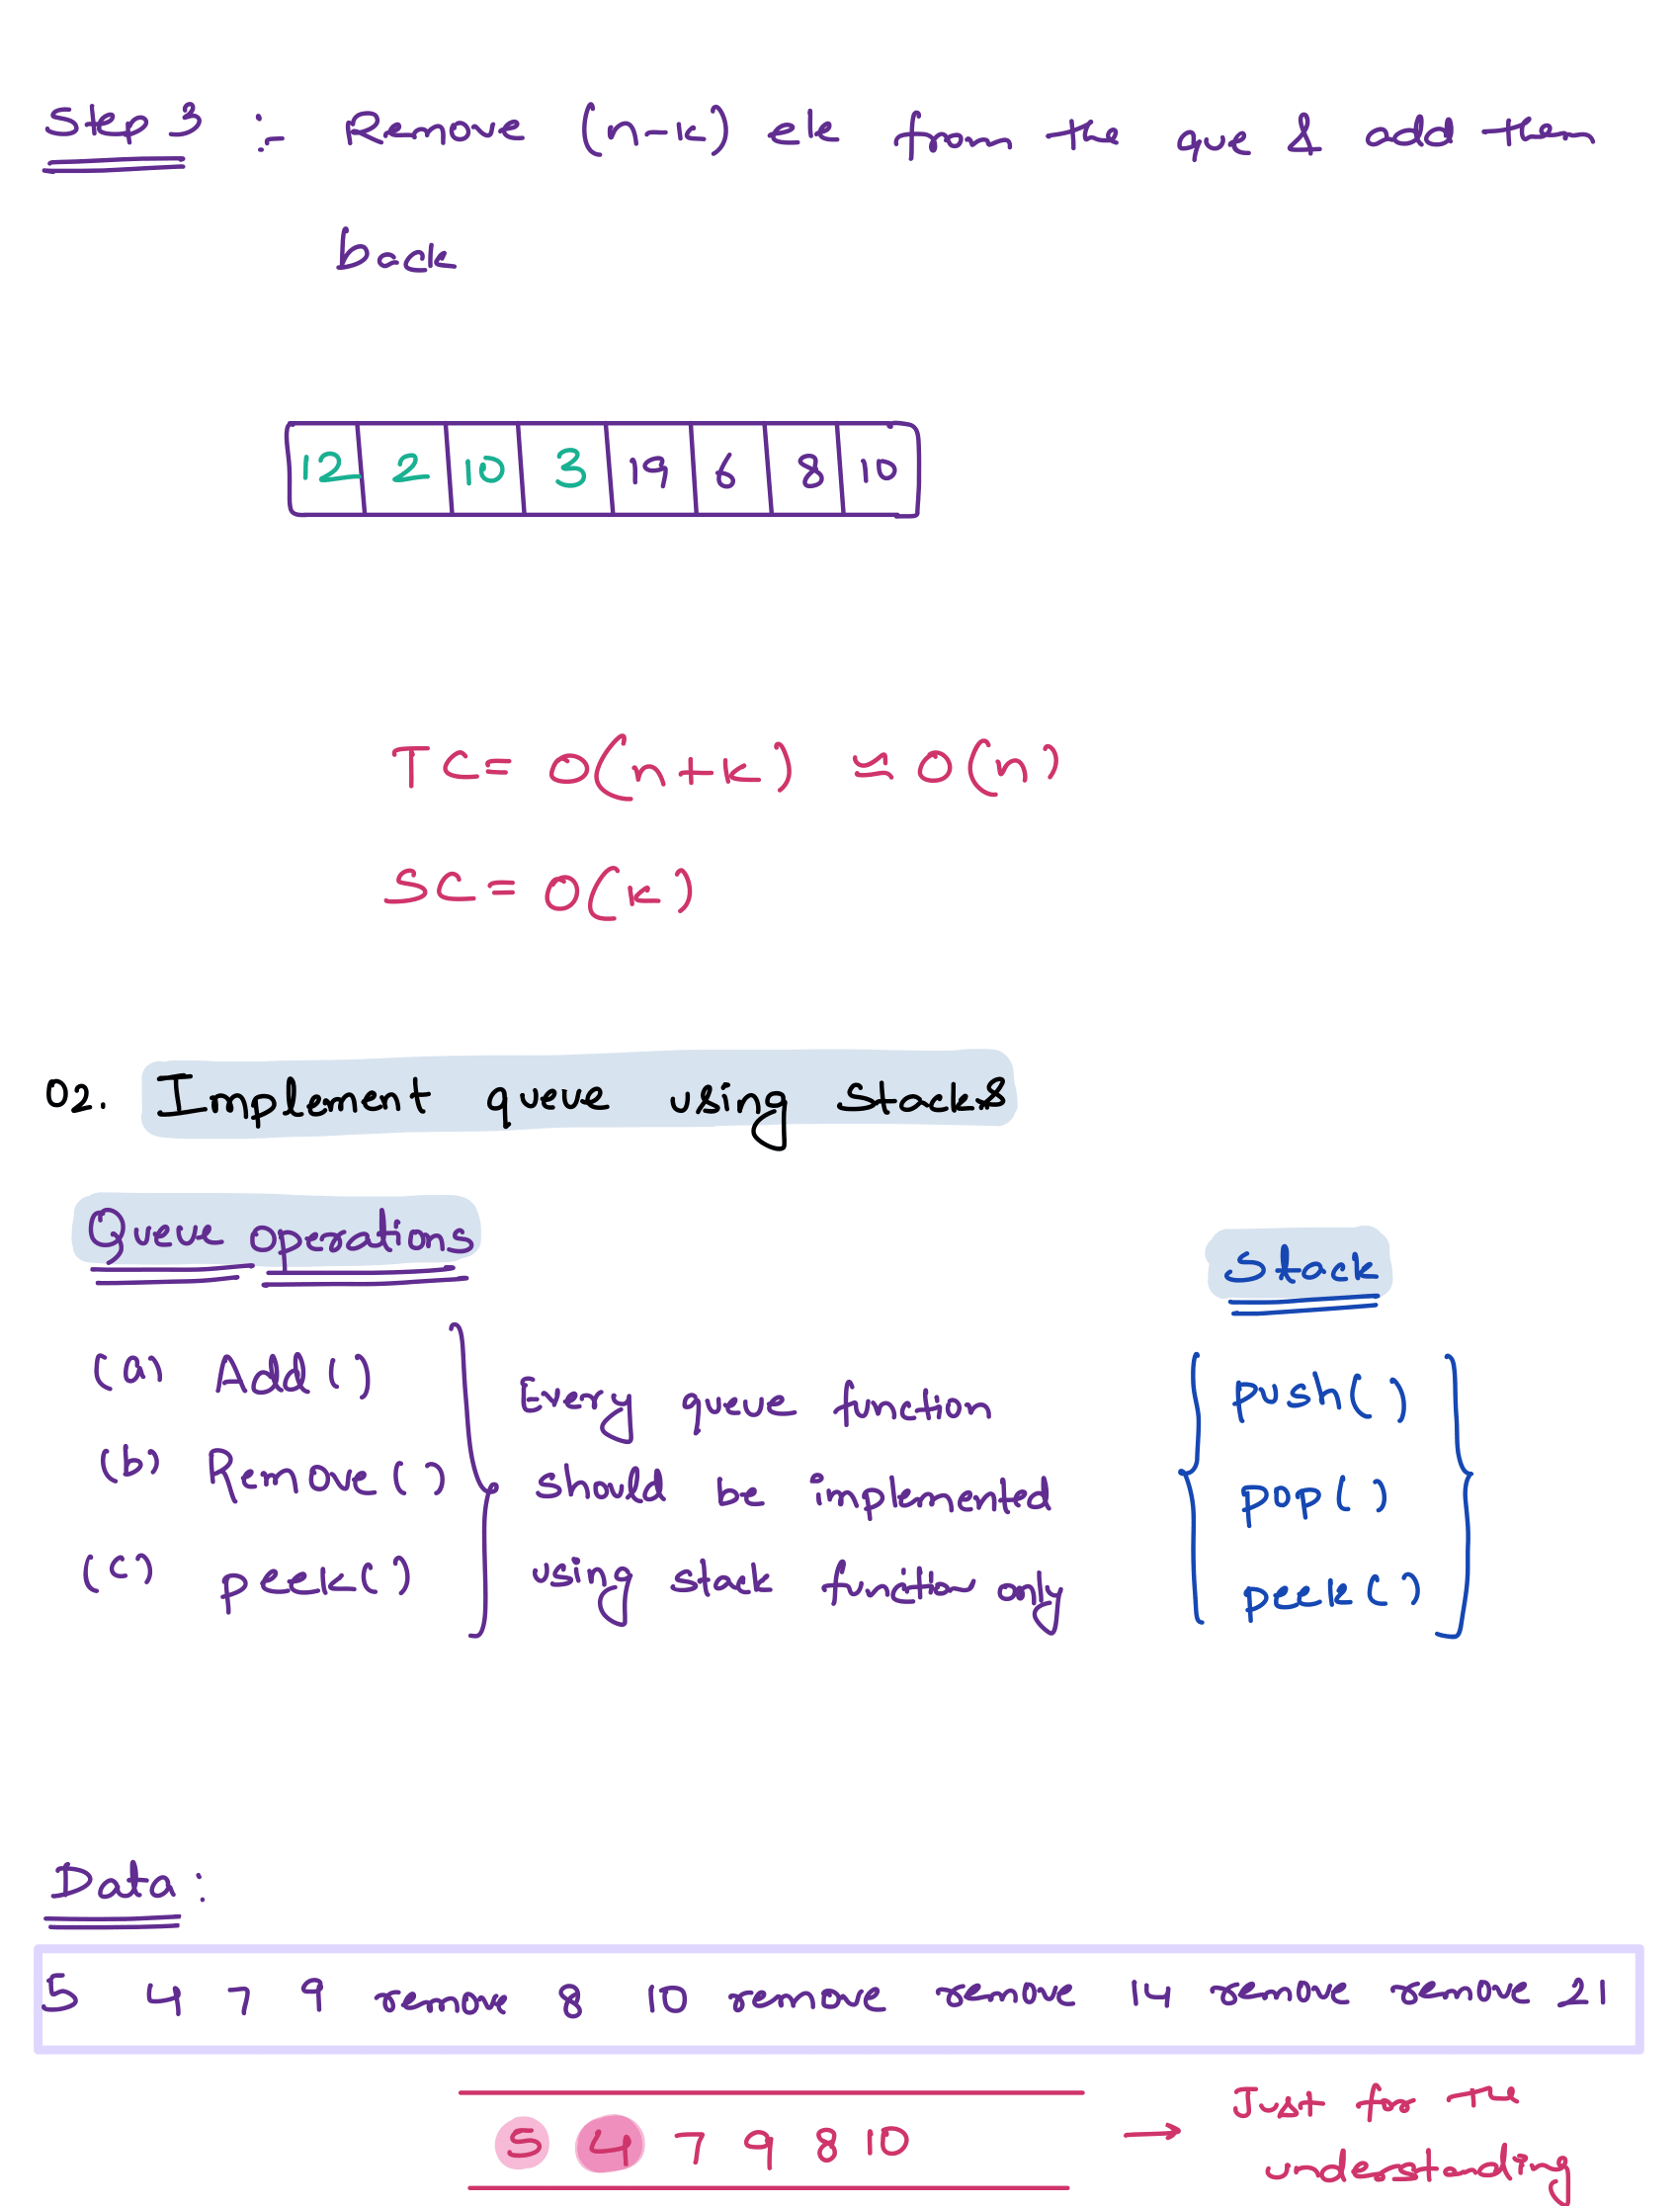 Step 3 :- Remove (n-k) ele from the que & add them
back
12 2 10 3 19 6 8 10
TC = O(n+k) ≈ O(n)
SC = O(k)
02. Implement queue using stacks
Queue operations
Stack
(a) Add()
(b) Remove()
(c) peek()
Every queue function
should be implemented
using stack function only
push()
pop()
peek()
Data :
5 4 7 9 remove 8 10 remove remove 14 remove remove 21
5 4 7 9 8 10 → Just for the
understanding